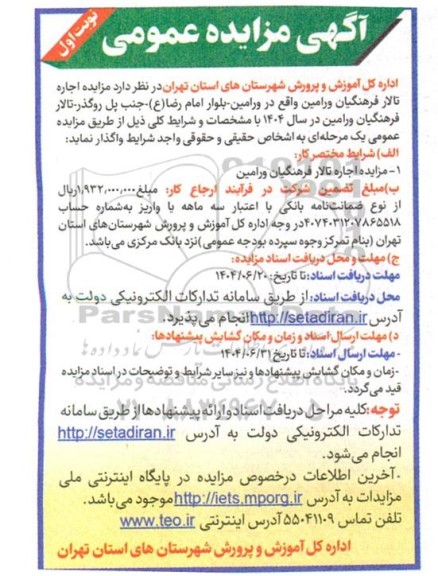 نوبت اول
آگهی مزایده عمومی
اداره کل آموزش و پرورش شهرستان های استان تهران در نظر دارد مزایده اجاره
تالار فرهنگیان ورامین واقع در ورامین-بلوار امام رضا(ع)-جنب پل روگذر-تالار
فرهنگیان ورامین در سال ۱۴۰۴ با مشخصات و شرایط کلی ذیل از طریق مزایده
عمومی یک مرحله‌ای به اشخاص حقیقی و حقوقی واجد شرایط واگذار نماید:
الف) شرایط مختصر کار:
۱- مزایده اجاره تالار فرهنگیان ورامین
ب) مبلغ تضمین شرکت در فرآیند ارجاع کار: مبلغ ۱,۹۳۲,۰۰۰,۰۰۰ ریال
از نوع ضمانت‌نامه بانکی با اعتبار سه ماهه یا واریز به‌شماره حساب
۴۰۷۴۰۳۱۲۰۷۸۶۵۵۱۸ در وجه اداره کل آموزش و پرورش شهرستان‌های استان
تهران (بنام تمرکز وجوه سپرده بودجه عمومی) نزد بانک مرکزی می‌باشد.
ج) مهلت و محل دریافت اسناد مزایده:
مهلت دریافت اسناد: تا تاریخ: ۱۴۰۴/۰۶/۲۰
محل دریافت اسناد: از طریق سامانه تدارکات الکترونیکی دولت به
آدرس http://setadiran.ir انجام می پذیرد.
د) مهلت ارسال اسناد و زمان و مکان گشایش پیشنهادها:
- مهلت ارسال اسناد: تا تاریخ ۱۴۰۴/۰۶/۳۱
-زمان و مکان گشایش پیشنهادها و نیز سایر شرایط و توضیحات در اسناد مزایده
قید می‌گردد.
توجه: کلیه مراحل دریافت اسناد و ارائه پیشنهادها از طریق سامانه
تدارکات الکترونیکی دولت به آدرس http://setadiran.ir
انجام می‌شود.
- آخرین اطلاعات درخصوص مزایده در پایگاه اینترنتی ملی
مزایدات به آدرس http://iets.mporg.ir موجود می‌باشد.
تلفن تماس ۵۵۰۴۱۱۰۹ آدرس اینترنتی www.teo.ir
اداره کل آموزش و پرورش شهرستان های استان تهران